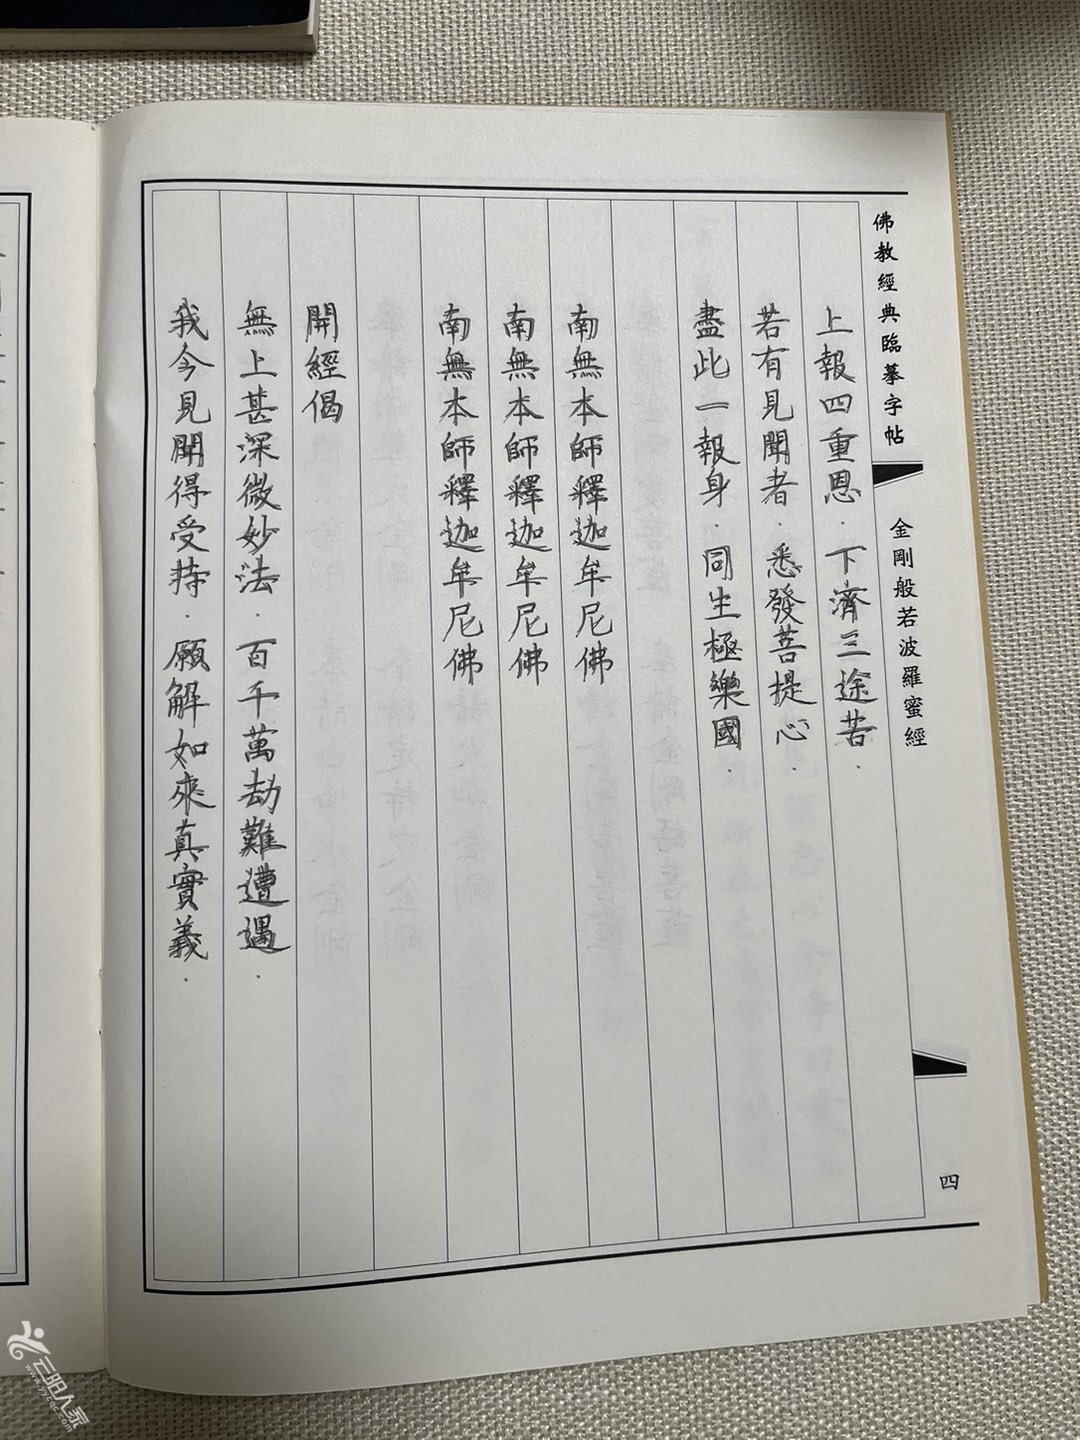 佛教經典臨摹字帖
金剛般若波羅蜜經
四
上報四重恩．下濟三途苦．
若有見聞者．悉發菩提心．
盡此一報身．同生極樂國．
南無本師釋迦牟尼佛
南無本師釋迦牟尼佛
南無本師釋迦牟尼佛
開經偈
無上甚深微妙法．百千萬劫難遭遇．
我今見聞得受持．願解如來真實義．
云阳人家